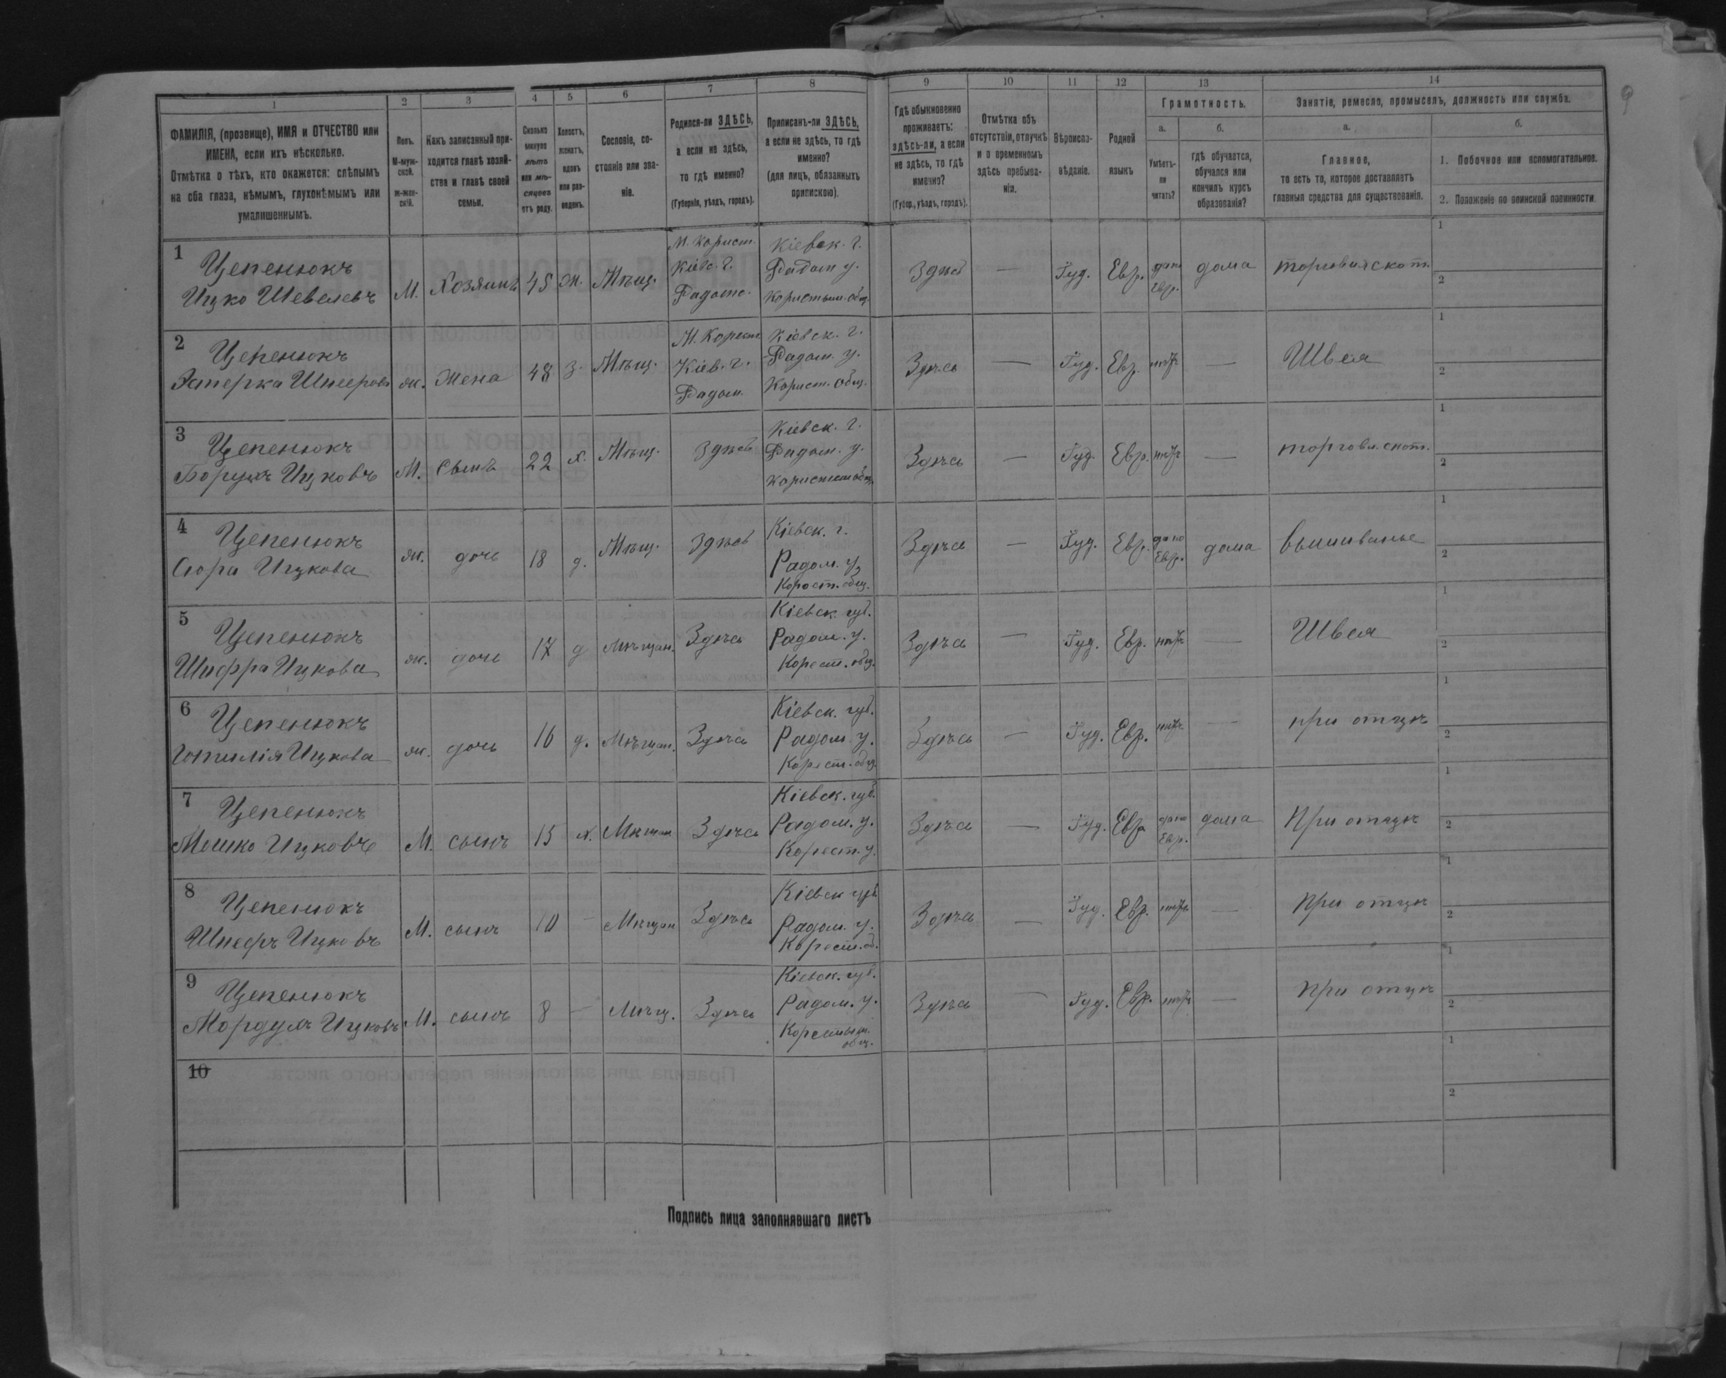 1 2 3 4 5 6 7 8 9 10 11 12 13 14
ФАМИЛІЯ, (прозвище), ИМЯ и ОТЧЕСТВО или
ИМЕНА, если ихъ нѣсколько.
Отмѣтка о тѣхъ, кто окажется: слѣпымъ
на оба глаза, нѣмымъ, глухонѣмымъ или
умалишеннымъ.
Полъ.
М-муж-
ской.
Ж-жен-
скій.
Какъ записанный при-
ходится главѣ хозяй-
ства и главѣ своей
семьи.
Сколько
минуло
лѣтъ
или мѣ-
сяцевъ
отъ роду.
Холостъ,
женатъ,
вдовъ
или раз-
веденъ.
Сословіе, со-
стояніе или зва-
ніе.
Родился-ли ЗДѢСЬ,
а если не здѣсь,
то гдѣ именно?
(Губернія, уѣздъ, городъ).
Приписанъ-ли ЗДѢСЬ,
а если не здѣсь, то гдѣ
именно?
(для лицъ, обязанныхъ
припискою).
Гдѣ обыкновенно
проживаетъ:
здѣсь-ли, а если
не здѣсь, то гдѣ
именно?
(Губер., уѣздъ, городъ).
Отмѣтка объ
отсутствіи, отлучкѣ
и о временномъ
здѣсь пребыва-
ніи.
Вѣроиспо-
вѣданіе.
Родной
языкъ
Грамотность.
а.
Умѣетъ-
ли
читать?
б.
гдѣ обучается,
обучался или
кончилъ курсъ
образованія?
Занятіе, ремесло, промыселъ, должность или служба.
а.
Главное,
то есть то, которое доставляетъ
главныя средства для существованія.
б.
1. Побочное или вспомогательное.
2. Положеніе по воинской повинности.
9
1
Цепенюкъ
Ицко Шевелевъ
М. Хозяинъ 45 ж. Мѣщ.
Кіевск. г.
Здѣсь — Іуд. Евр. дома
2
Цепенюкъ
Эстерка
ж. жена 48 з. Мѣщ.
Кіев. г.
Радом.
Кіевск. г.
Радом. у.
Здѣсь — Іуд. Евр. нѣтъ — Швея
3
Цепенюкъ
Борухъ Ицковъ
М. сынъ 22 х. Мѣщ. Здѣсь
Кіевск. г.
Радом. у.
Здѣсь — Іуд. Евр. нѣтъ — торговл. скот.
4
Цепенюкъ
Сюра Ицкова
ж. дочь 18 д. Мѣщ. Здѣсь
Кіевск. г.
Радом. у.
Корост. общ.
Здѣсь — Іуд. Евр. да по Евр. дома вышиванье
5
Цепенюкъ
Шифра Ицкова
ж. дочь 17 д Мѣщан. Здѣсь
Кіевск. губ.
Радом. у.
Корост. общ.
Здѣсь — Іуд. Евр. нѣтъ — Швея
6
Цепенюкъ
Ицкова
ж. дочь 16 д. Мѣщан. Здѣсь
Кіевск. губ.
Радом. у.
Корост. общ.
Здѣсь — Іуд. Евр. нѣтъ — при отцѣ
7
Цепенюкъ
Мошко Ицковъ
М. сынъ 15 х. Мѣщан Здѣсь
Кіевск. губ.
Радом. у.
Корост. у.
Здѣсь — Іуд. Евр. да по Евр. дома При отцѣ
8
Цепенюкъ
Ицковъ
М. сынъ 10 — Мѣщан Здѣсь
Кіевск губ
Радом. у.
Здѣсь — Іуд. Евр. нѣтъ — При отцѣ
9
Цепенюкъ
Мордухъ Ицковъ
М. сынъ 8 — Мѣщ. Здѣсь
Кіевск. губ.
Радом. у.
общ.
Здѣсь — Іуд. Евр. нѣтъ — при отцѣ
10
Подпись лица заполнявшаго листъ